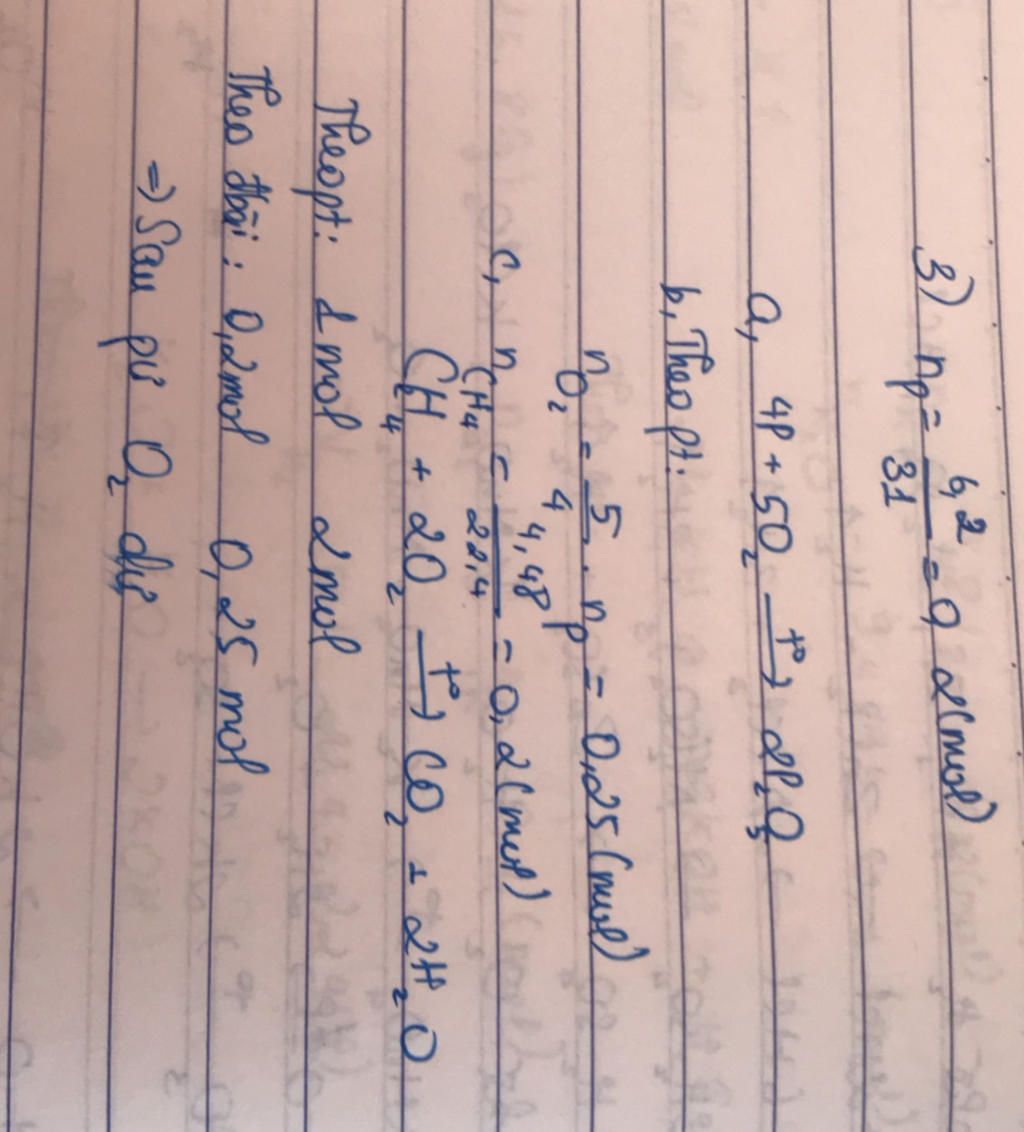 3) nP = 6,2/31 = 0,2(mol)
a, 4P + 5O2 —t°→ 2P2O5
b, Theo pt:
nO2 = 5/4 . nP = 0,25 (mol)
c, nCH4 = 4,48/22,4 = 0,2(mol)
CH4 + 2O2 —t°→ CO2 + 2H2O
Theo pt: 1mol 2mol
Theo đbài: 0,2mol 0,25mol
=> Sau pứ O2 dư